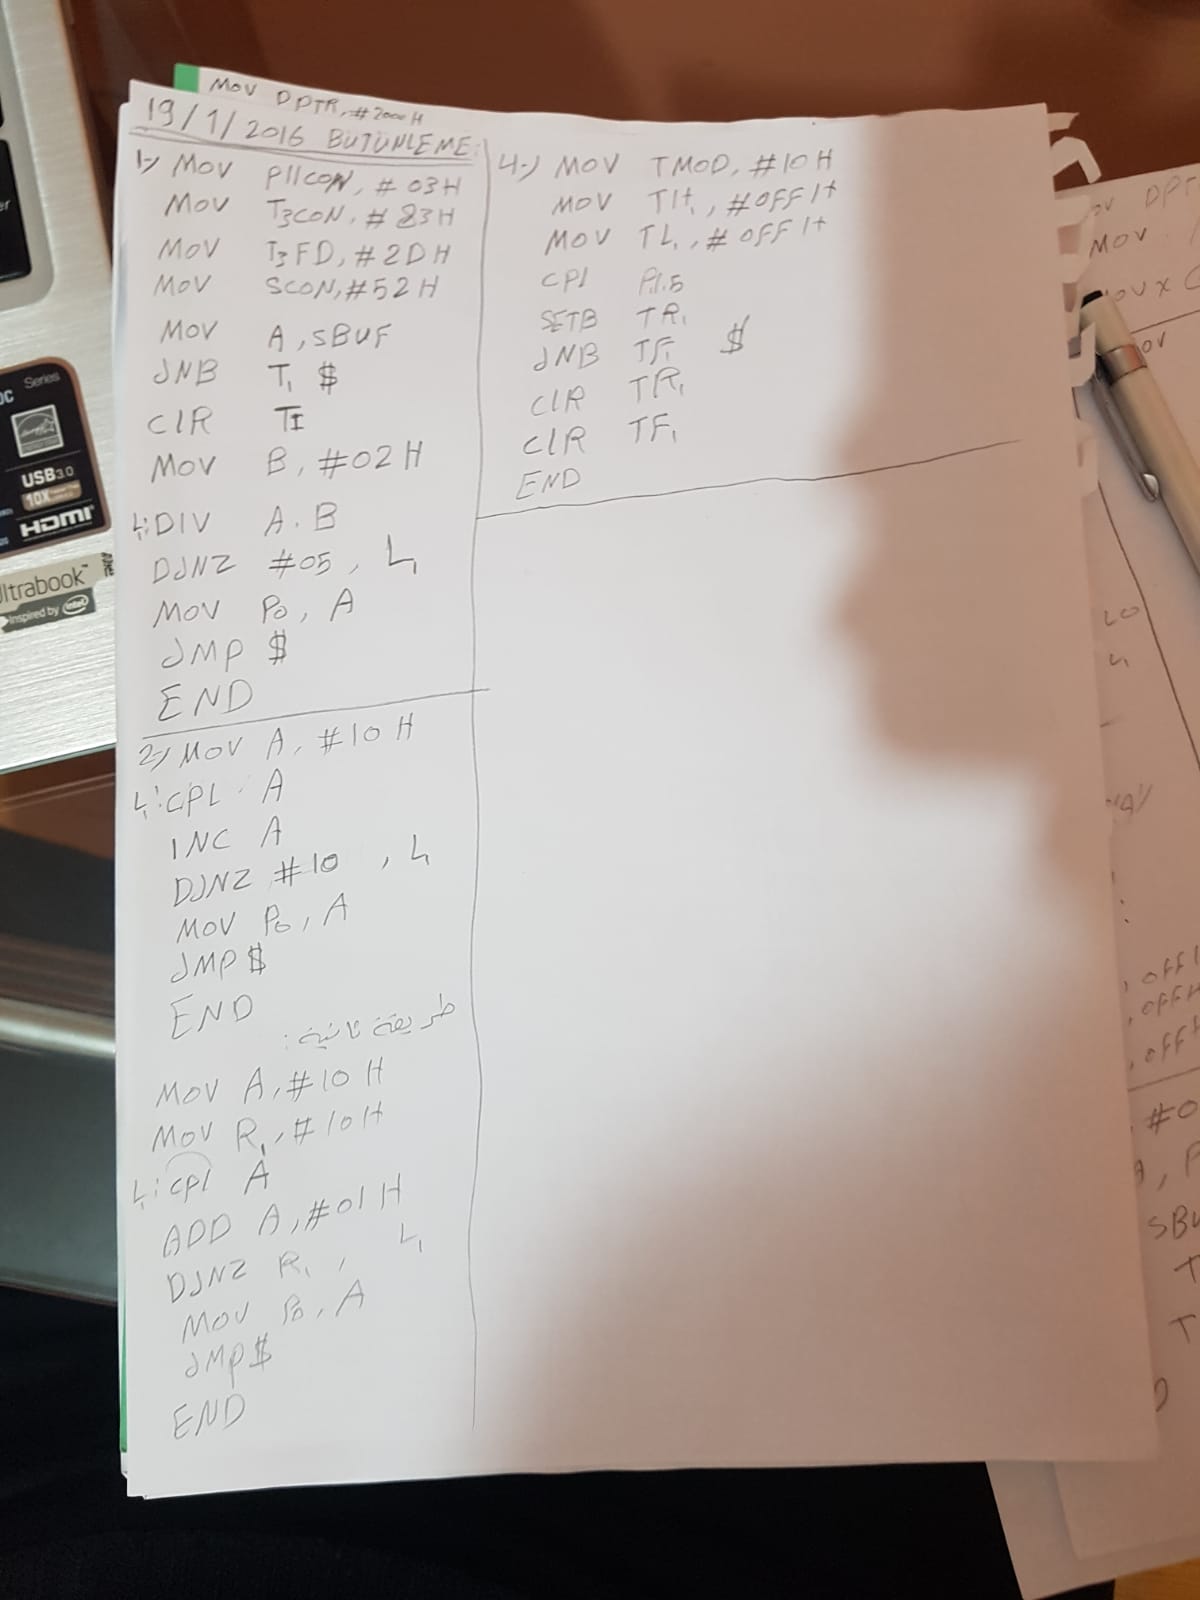 MOV DPTR, #2000H
19/1/2016 BÜTÜNLEME:
1-) MOV P11CON, #03H
MOV T3CON, #83H
MOV T3FD, #2DH
MOV SCON, #52H
MOV A, SBUF
JNB T1 $
ClR TI
MOV B, #02H
L1: DIV A.B
DJNZ #05, L1
MOV P0, A
JMP $
END
2-) MOV A, #10H
L1: CPL A
INC A
DJNZ #10, L1
MOV P0, A
JMP $
END
طريقة ثانية:
MOV A, #10H
MOV R1, #10H
L1: CPl A
ADD A, #01H
DJNZ R1, L1
MOV P0, A
JMP $
END
4-) MOV TMOD, #10H
MOV TH1, #OFFH
MOV TL1, #OFFH
CPl P1.5
SETB TR1
JNB TF1 $
ClR TR1
ClR TF1
END
Series
USB3.0
10X
HDMI
ltrabook™
Inspired by intel
MOV
OFFH
#0
SBU